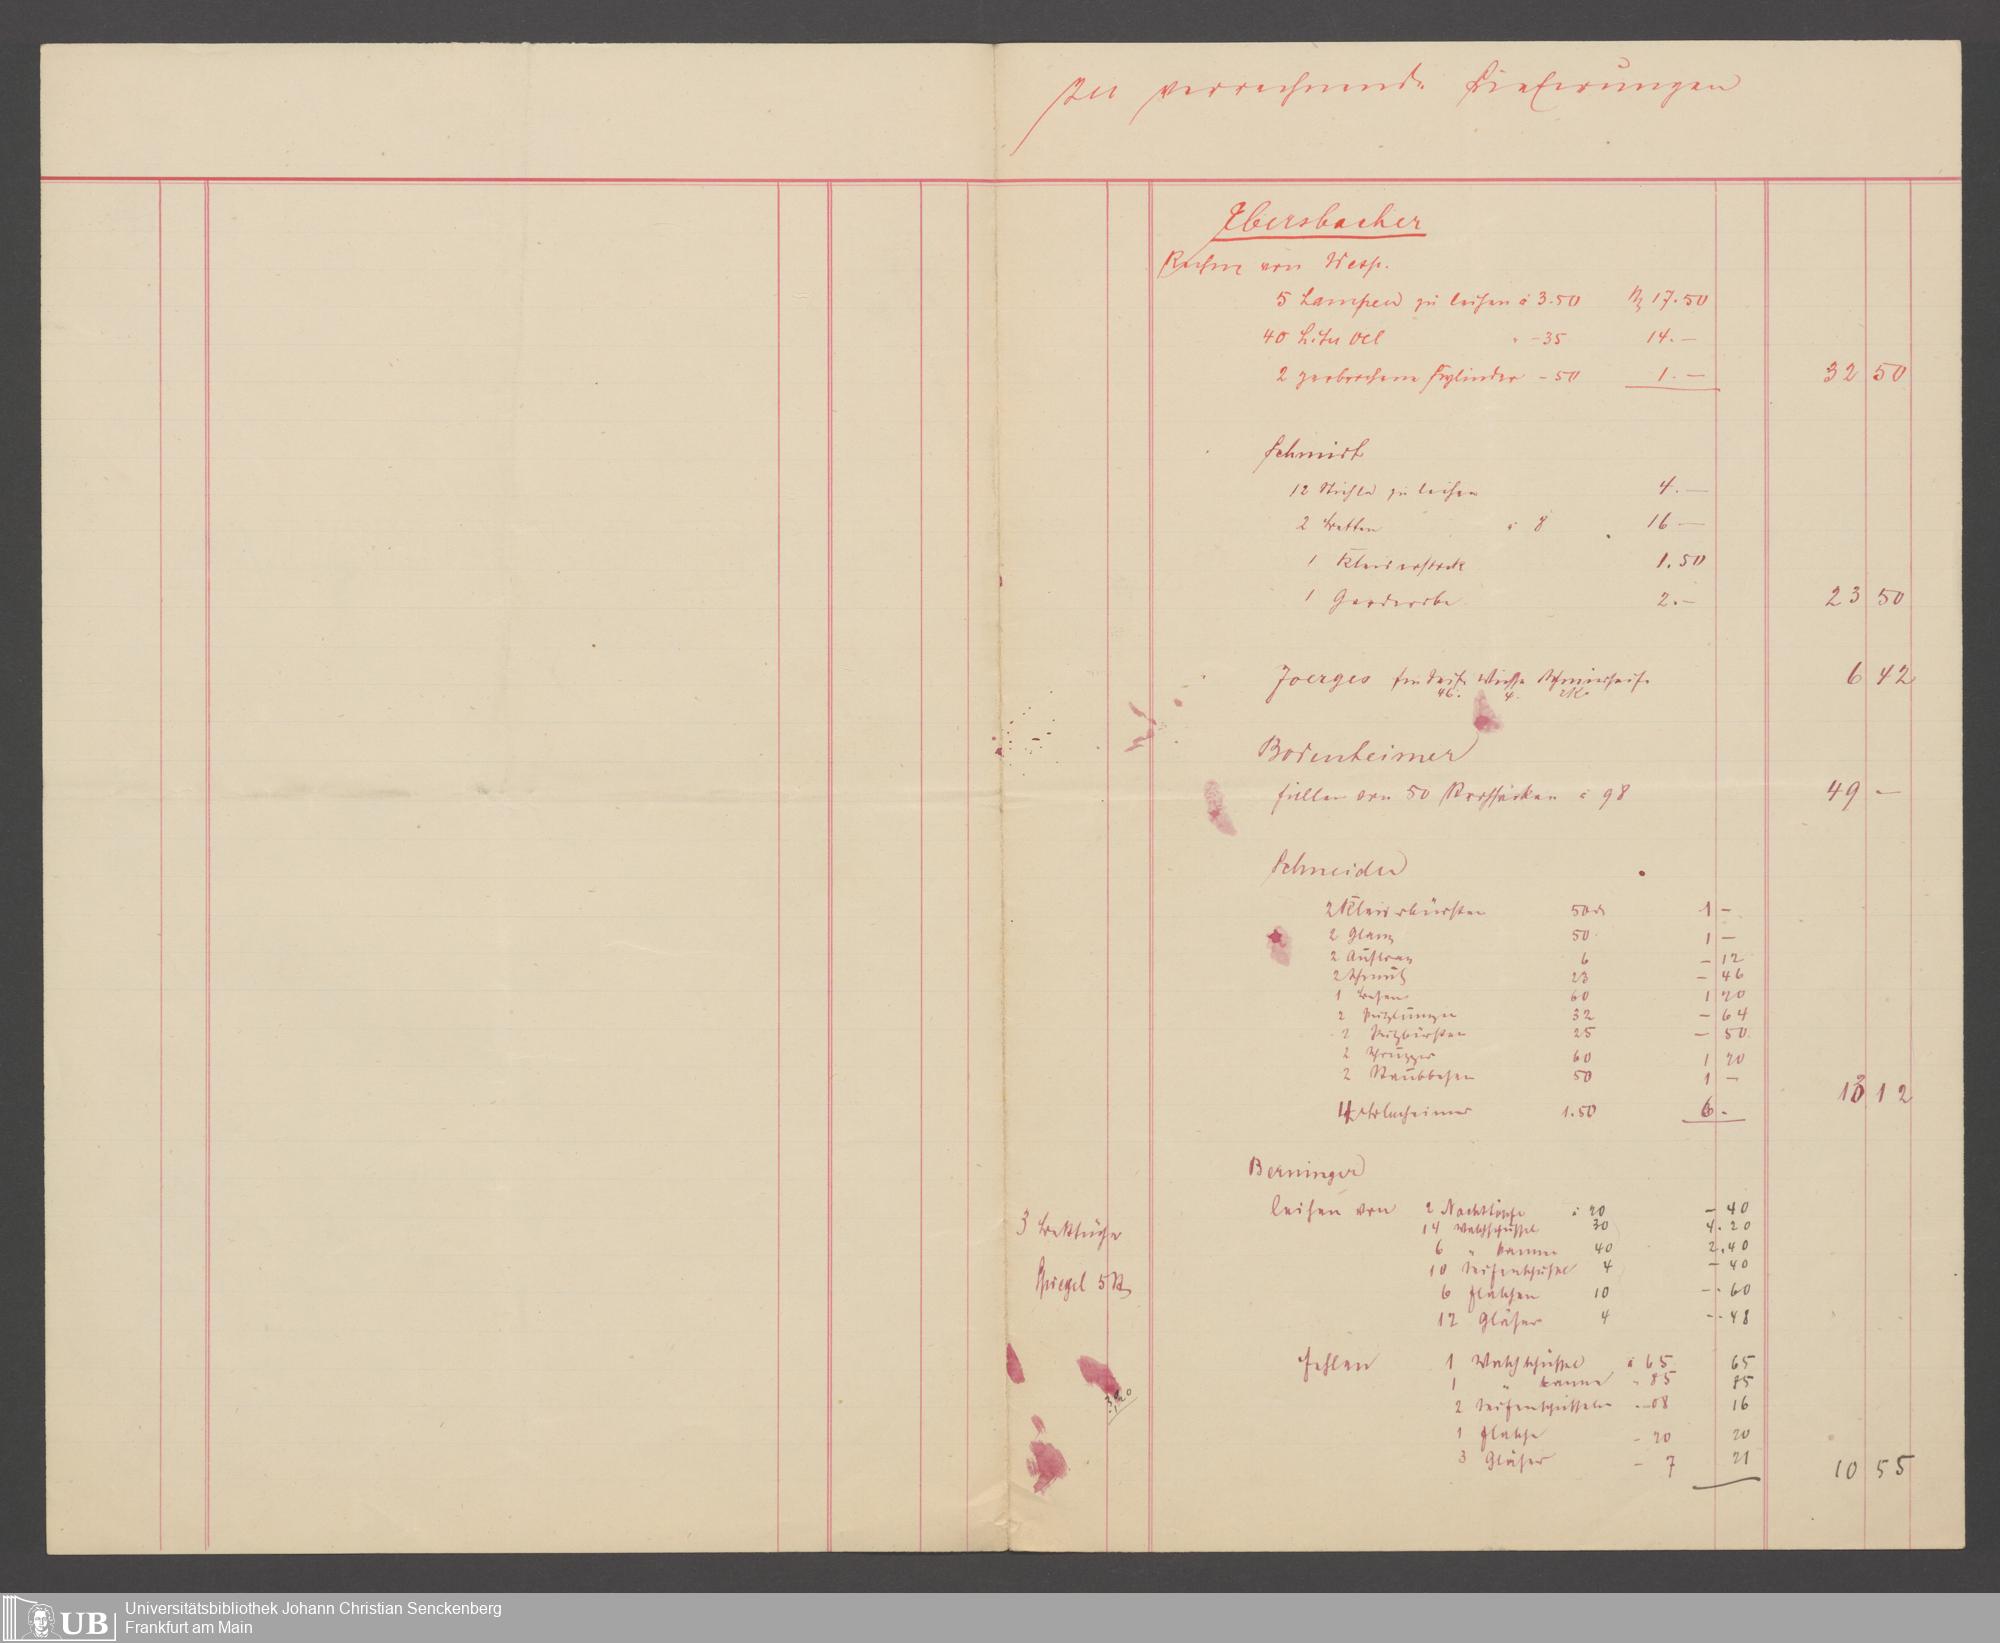 Zu verrechnende Lieferungen
Ebersbacher
Rechn von Wesp.
5 Lampen zu leihen à 3.50 M 17.50
40 Liter Oel " -35 14.—
2 zerbrochene Cylinder - 50 1.— 32 50
Schmidt
12 Stühle zu leihen 4.—
2 Betten à 8 16 —
1 Kleiderstock 1.50
1 Garderobe 2.— 23 50
Joerges Wichse Schmierseife 6 42
Bodenheimer
füllen von 50 Strohsäcken à 98 49 —
Schneider
2 Kleiderbürsten 50 1 —
2 Glanz 50 1 —
2 Auftrag 6 — 12
2 Schmutz 23 — 46
1 Besen 60 1 20
2 32 — 64
2 Putzbürsten 25 — 50
2 Schrupper 60 1 20
2 Staubbesen 50 1 —
4 1.50 6.
13 12
Berninger
leihen von 2 Nachttöpfe à 20 — 40
14 Waschschüssel 30 4.20
6 " kannen 40 2.40
10 Seifenschüssel 4 — 40
6 Flaschen 10 — 60
12 Gläser 4 — 48
3 Betttücher
Spiegel 5 M
fehlen 1 Waschschüssel à 65 65
1 " kanne " 85 85
2 Seifenschüsseln - 08 16
1 Flasche - 20 20
3 Gläser - 7 21
10 55
UB
Universitätsbibliothek Johann Christian Senckenberg
Frankfurt am Main